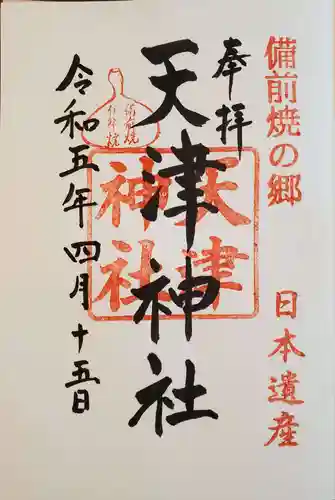 備前焼の郷
日本遺産
奉拝
天津神社
天津
神社
備前焼
令和五年四月十五日